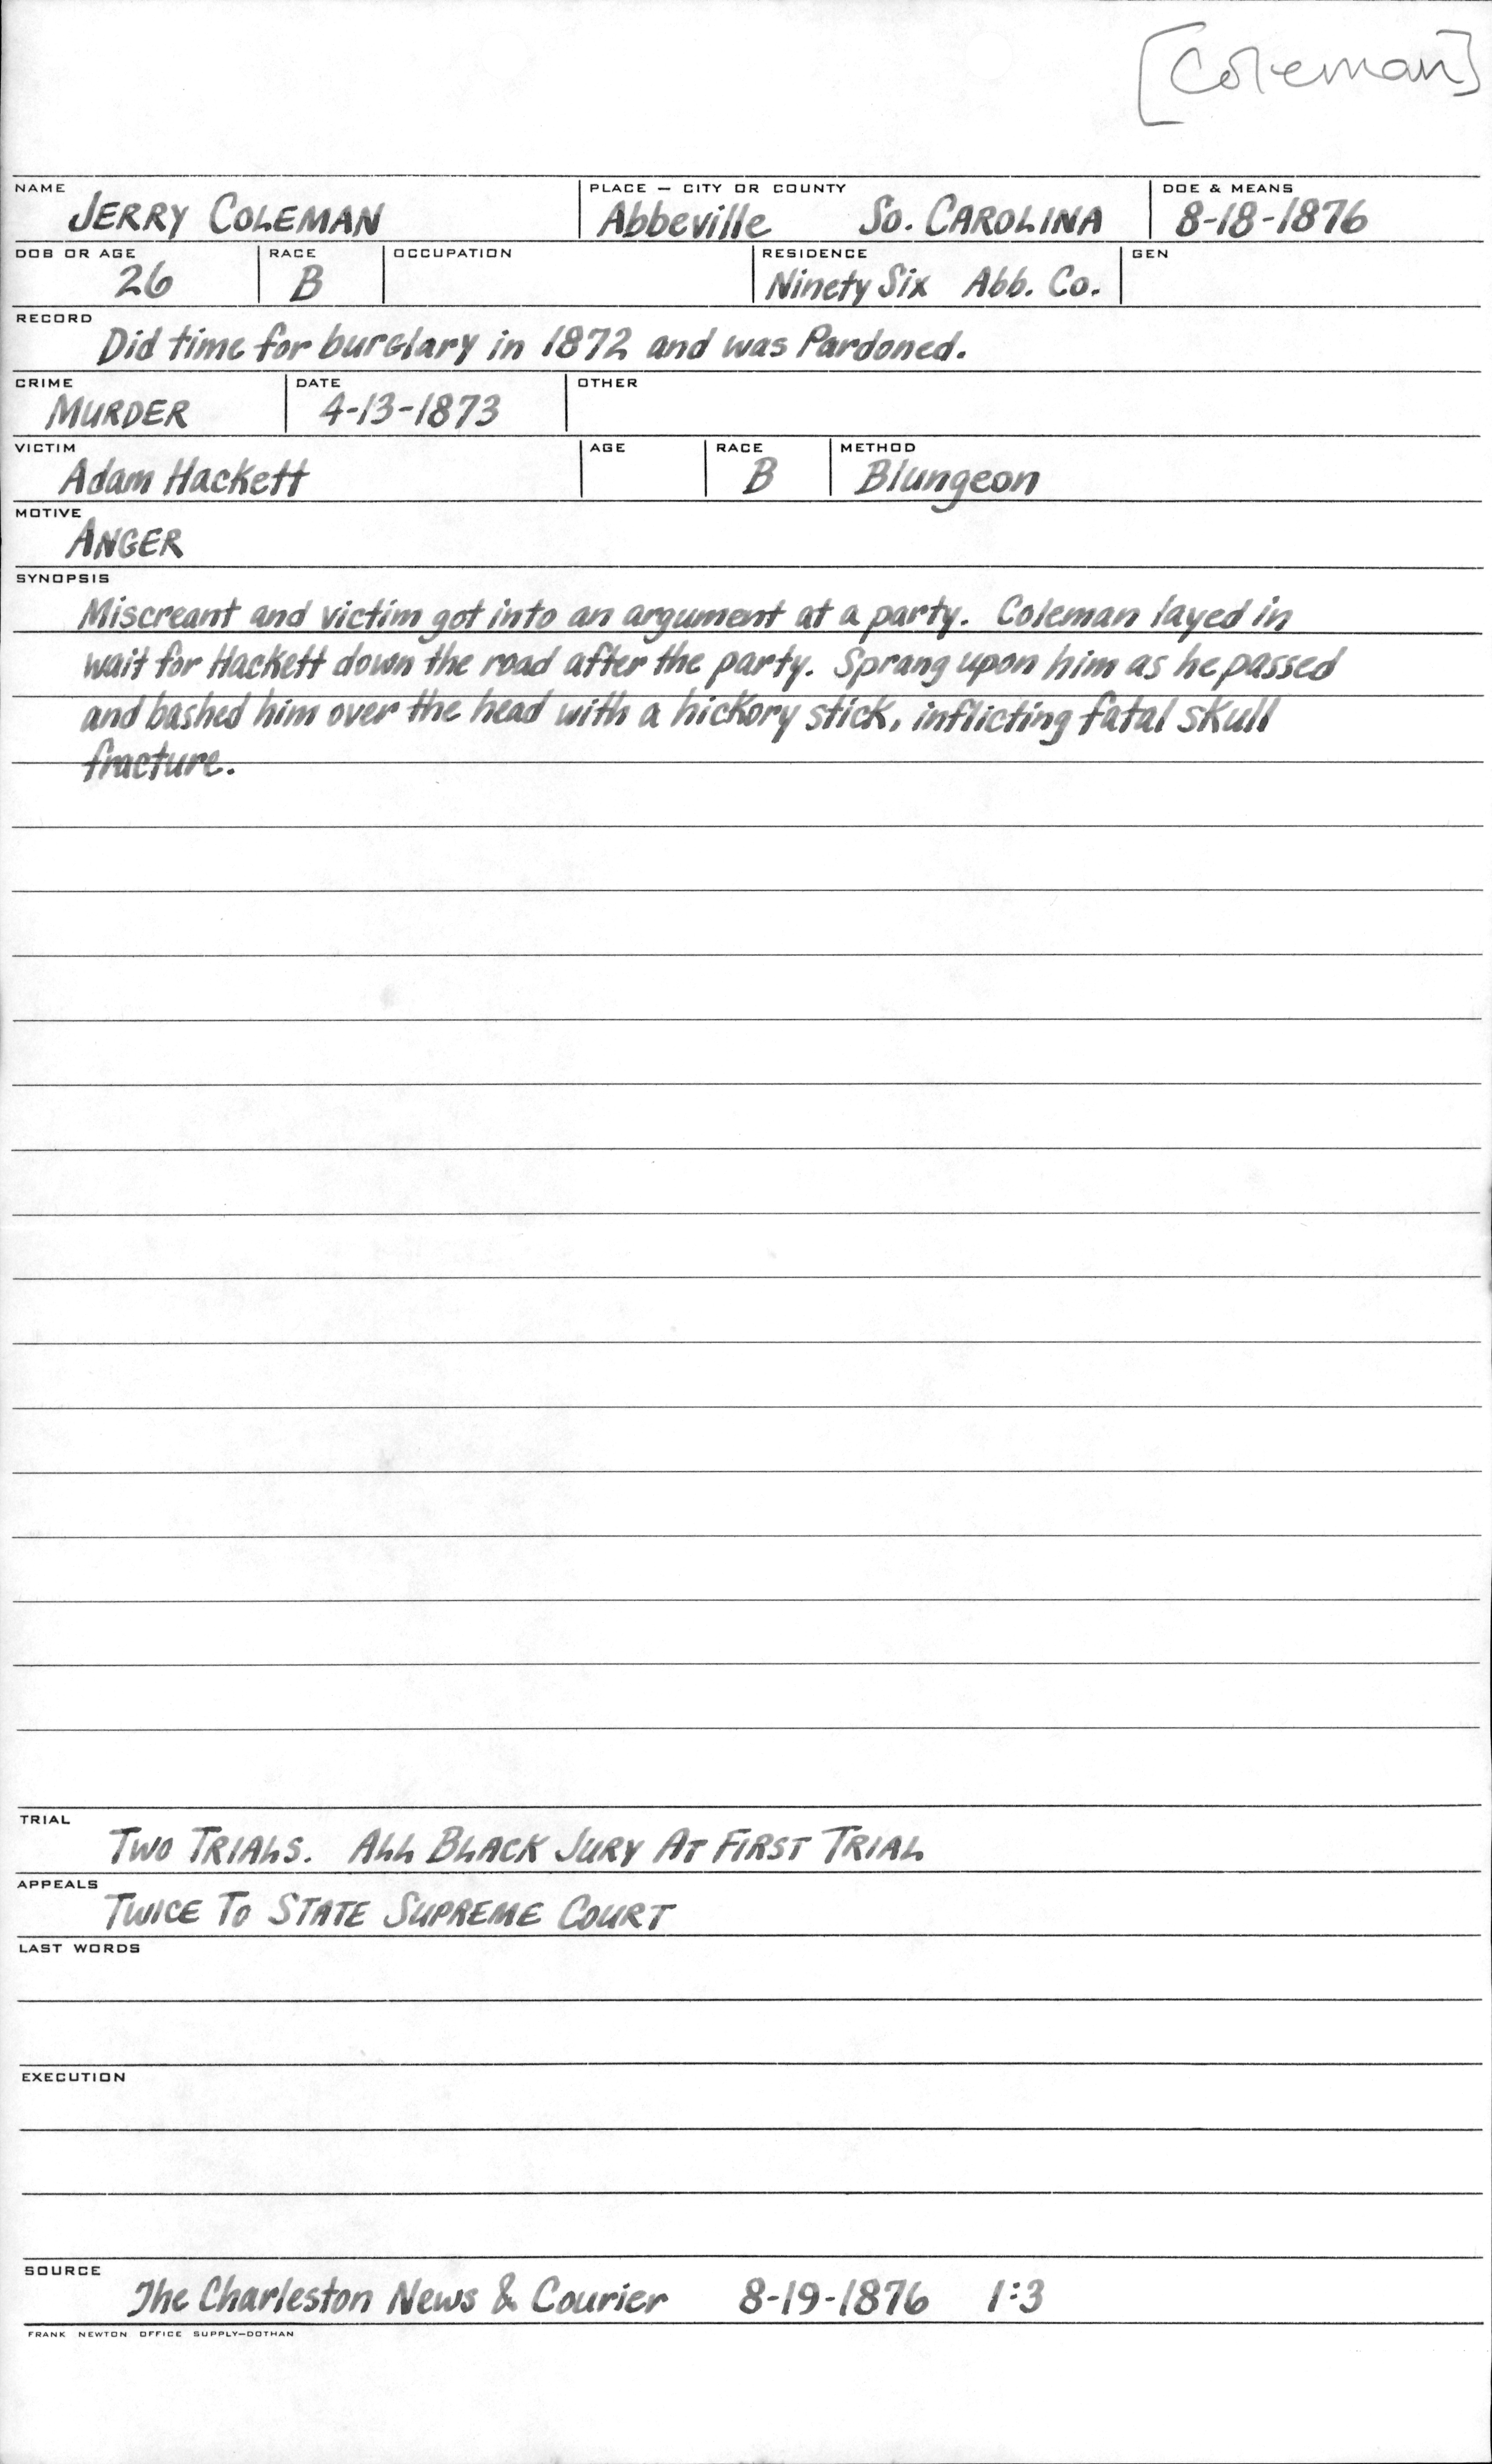 [Coleman]
NAME PLACE — CITY OR COUNTY DOE & MEANS
JERRY COLEMAN Abbeville So. CAROLINA 8-18-1876
DOB OR AGE RACE OCCUPATION RESIDENCE GEN
26 B Ninety Six Abb. Co.
RECORD
Did time for burglary in 1872 and was Pardoned.
CRIME DATE OTHER
MURDER 4-13-1873
VICTIM AGE RACE METHOD
Adam Hackett B Blungeon
MOTIVE
ANGER
SYNOPSIS
Miscreant and victim got into an argument at a party. Coleman layed in
wait for Hackett down the road after the party. Sprang upon him as he passed
and bashed him over the head with a hickory stick, inflicting fatal skull
fracture.
TRIAL
TWO TRIALS. ALL BLACK JURY AT FIRST TRIAL
APPEALS
TWICE TO STATE SUPREME COURT
LAST WORDS
EXECUTION
SOURCE
The Charleston News & Courier 8-19-1876 1:3
FRANK NEWTON OFFICE SUPPLY—DOTHAN